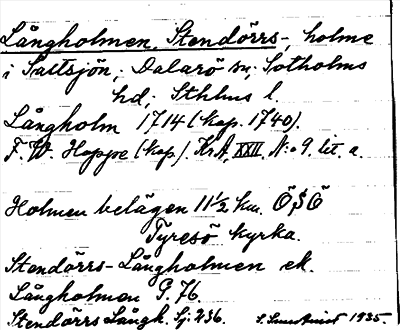 Långholmen, Stendörrs-, holme
i Saltsjön; Dalarö sn; Sotholms
hd; Sthlms l.
Långholm 1714 (kop. 1740).
F. W. Hoppe (kop.). Kr.A. XXII. N:o 9. lit. a.
Holmen belägen 11 1/2 km. ÖSÖ
Tyresö kyrka.
Stendörrs-Långholmen ek.
Långholmen G. 76.
Stendörrs Långh. Sj: 236.
1935.